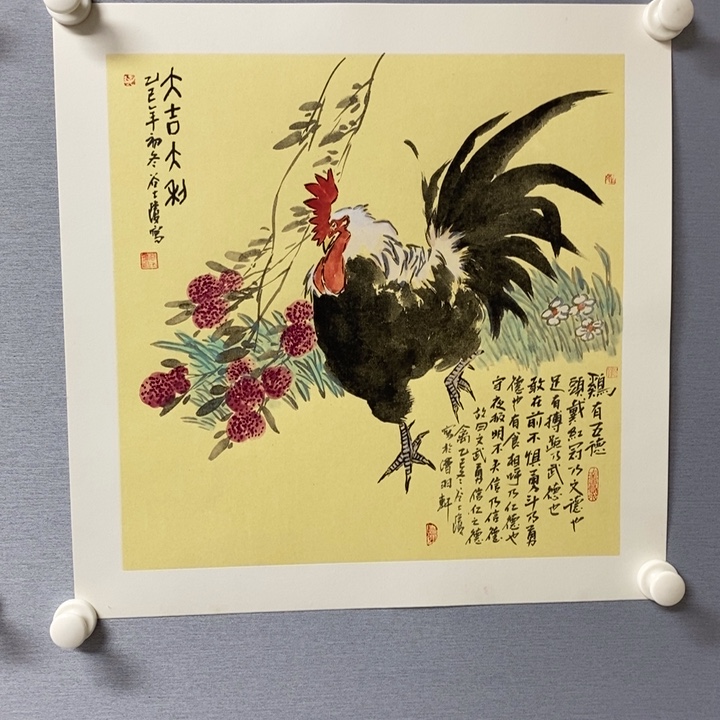 大吉大利
乙巳年初冬谷士寫
鷄有五德
頭戴紅冠乃文德也
足有搏距乃武德也
敢在前不惧勇斗乃勇
德也有食相呼乃仁德也
守夜報明不失信乃信德
故曰文武勇信仁之德
禽乙巳冬谷士
寫於羽軒